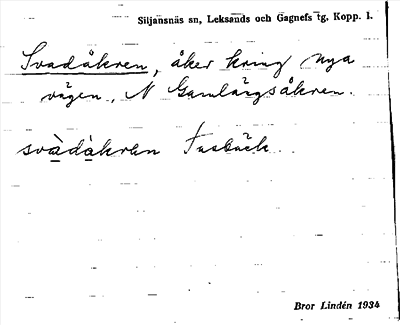 Siljansnäs sn, Leksands och Gagnefs tg, Kopp. l.
Svadåkren, åker kring nya
vägen, N Gamlängsåkren.
svàdåkrən Tusbäck
Bror Lindén 1934